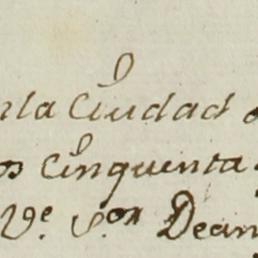 nla Ciudad
os Cinquenta
Ve. S.or Dean